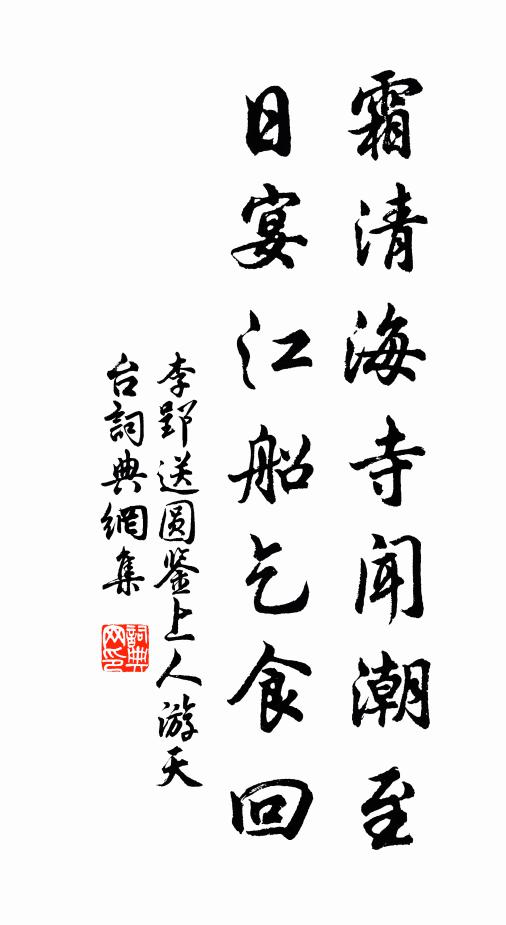 霜清海寺闻潮至
日宴江船乞食回
李郢送圆鉴上人游天
台詞典網集
詞典网印